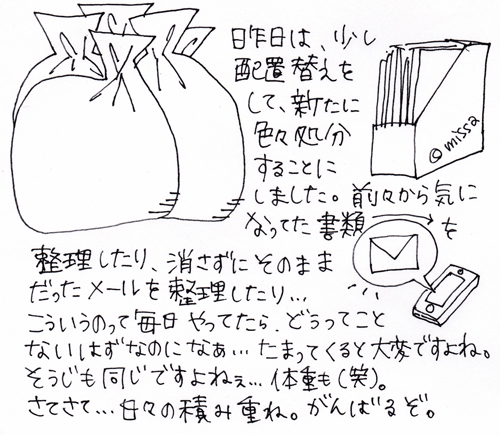 昨日は、少し
配置替えを
して、新たに
色々処分
することに
しました。前々から気に
なってた書類を
整理したり、消さずにそのまま
だったメールを整理したり...
こういうのって毎日やってたら、どうってこと
ないはずなのになぁ...たまってくると大変ですよね。
そうじも同じですよねぇ...体重も(笑)。
さてさて...日々の積み重ね。がんばるぞ。
©missa